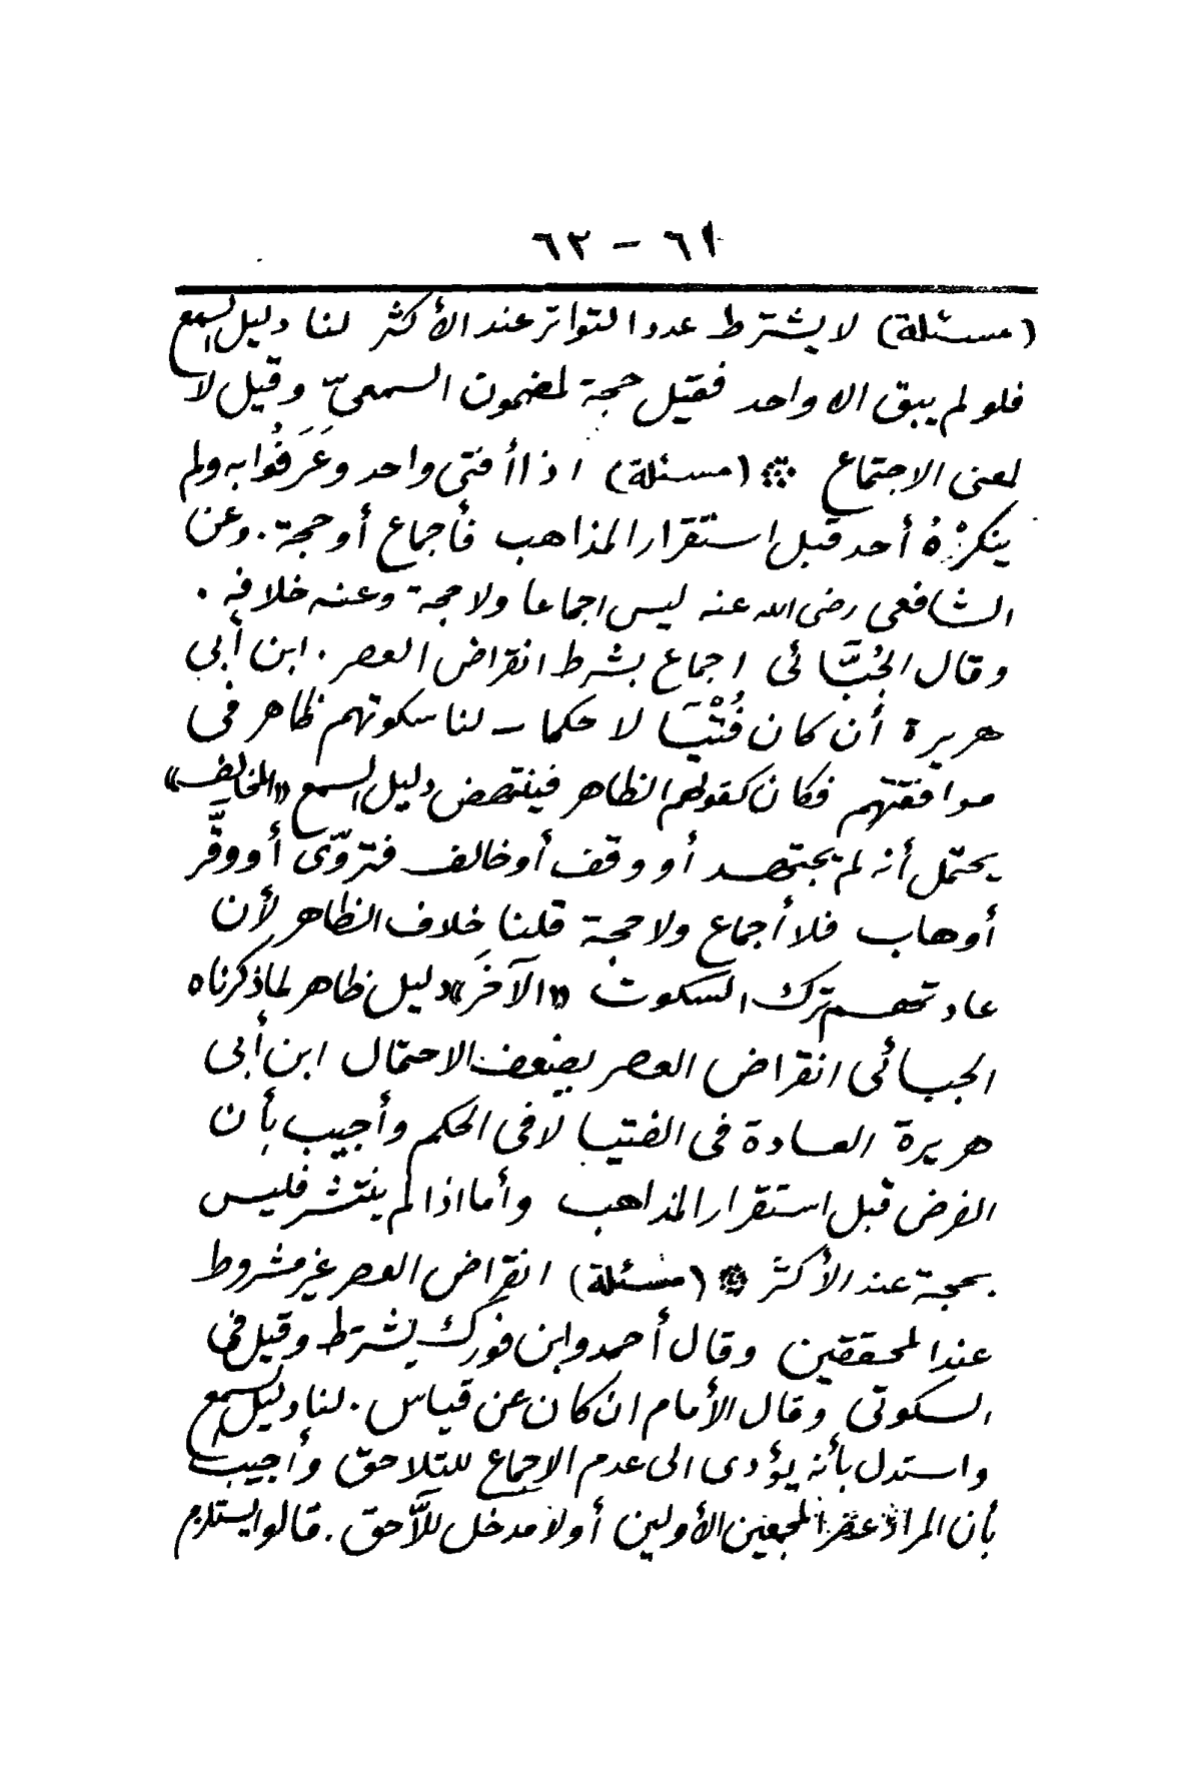 ٦١ - ٦٢
(مسئلة) لا يشترط عدد التواتر عند الأكثر لنا دليل السمع
فلو لم يبق الا واحد فقيل حجة لمضمون السمعىّ وقيل لا
لمعنى الاجتماع ⁘ (مسئلة) اذا أفتى واحد وعَرَفُوا به ولم
ينكرْهُ أحد قبل استقرار المذاهب فأجماع أو حجة . وعن
الشافعى رضى الله عنه ليس اجماعا ولا حجة وعنه خلافه .
وقال الجُبَّائى اجماع بشرط انقراض العصر . ابن أبى
هريرة أن كان فُتْيَا لا حكما ــ لنا سكوتهم ظاهر فى
موافقتهم فكان كقولهم الظاهر فينتهض دليل السمع «المخالف»
يحتمل أنه لم يجتهد أو وقف أو خالف فتروّى أو وقَّر
أو هاب فلا أجماع ولا حجة قلنا خلاف الظاهر لأن
عادتهم ترك السكوت «الآخَر» دليل ظاهر لما ذكرناه
الجبائى انقراض العصر يضعف الاحتمال ابن أبى
هريرة العادة فى الفتيا لا فى الحكم وأجيب بأن
الفرض قبل استقرار المذاهب وأما اذا لم ينتشر فليس
بحجة عند الأكثر ⁘ (مسئلة) انقراض العصر غير مشروط
عند المحققين وقال أحمد وابن فورك يشترط وقيل فى
السكوتى وقال الأمام ان كان عن قياس . لنا دليل السمع
واستدل بأنه يؤدى الى عدم الاجماع للتلاحق وأجيب
بأن المراد عصر المجمعين الأولين أو لا مدخل للّاحق . قالوا يستلزم